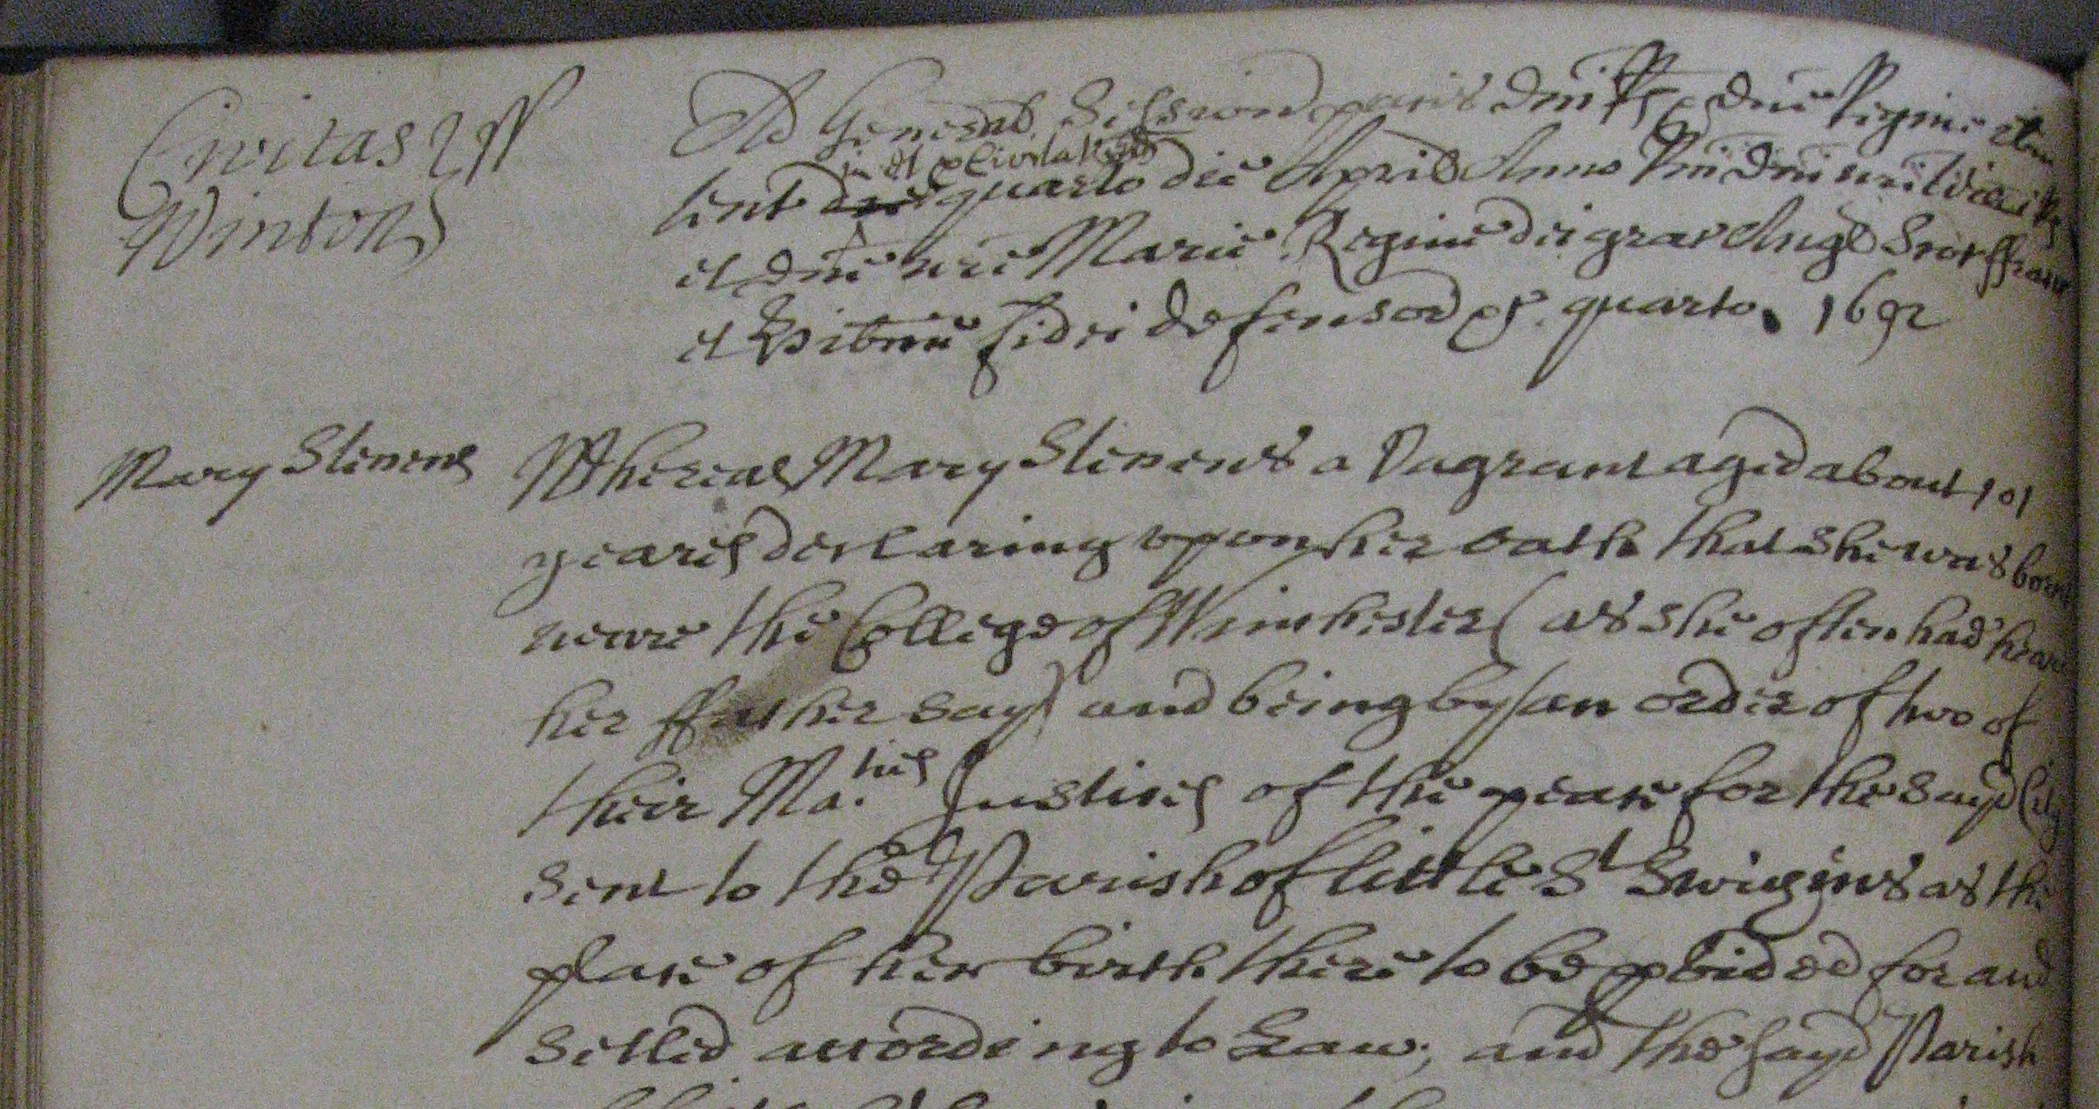 Civitas } ss
Winton
Ad General Session pacis dni Rs & dne Regine
in et p Civitat
tent quarto die April Anno Rni dni nri Willi
et dne nre Marie Regine dei gra Angl Scot ffranc
et Hibnie fidei defensor &c. quarto. 1692
Mary Stevens
Whereas Mary Stevens a Vagrant aged about 101
yeares declaring upon her oath that she was borne
neare the College of Winchester (as she often had heard
her ffather say) and being by an order of two of
their Ma.ties Justices of the peace for the sayd City
sent to the Parish of little St Swigins as the
place of her birth there to be pvided for and
setled according to Law; and the sayd Parish